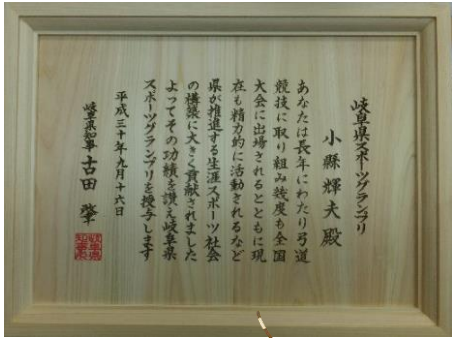 岐阜県スポーツグランプリ
小縣輝夫殿
あなたは長年にわたり弓道
競技に取り組み幾度も全国
大会に出場されるとともに現
在も精力的に活動されるなど
県が推進する生涯スポーツ社会
の構築に大きく貢献されました
よってその功績を讃え岐阜県
スポーツグランプリを授与します
平成三十年九月十六日
岐阜県知事 古田 肇